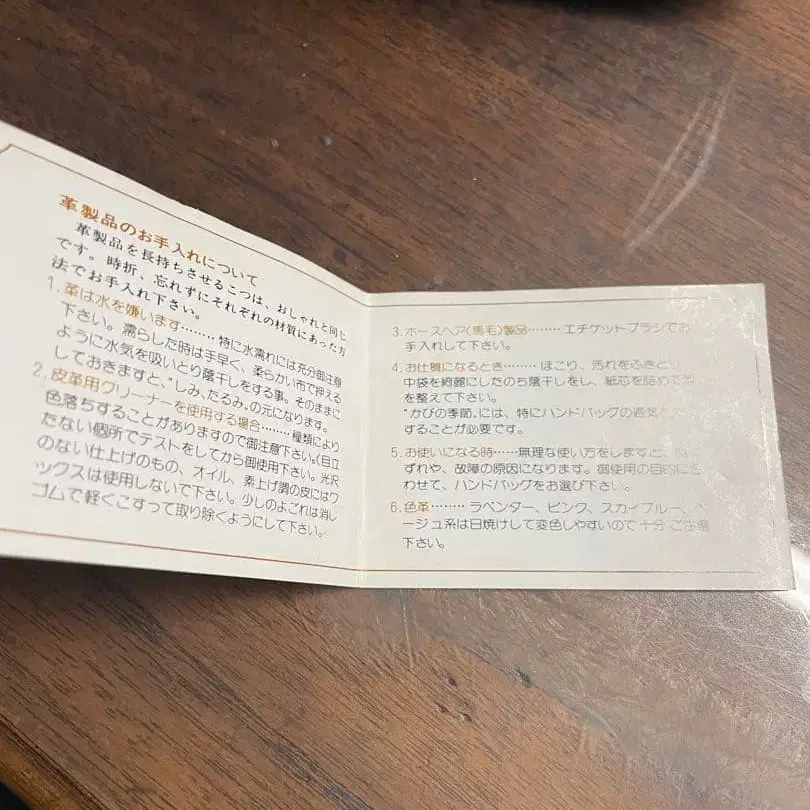 革製品のお手入れについて
革製品を長持ちさせるこつは、おしゃれと同じ
です。時折、忘れずにそれぞれの材質にあった方
法でお手入れ下さい。
1. 革は水を嫌います……… 特に水濡れには充分御注意
下さい。濡らした時は手早く、柔らかい布で押える
ように水気を吸いとり蔭干しをする事。そのままに
しておきますと、“しみ、たるみ、の元になります。
2. 皮革用クリーナーを使用する場合……… 種類により
色落ちすることがありますので御注意下さい。(目立
たない個所でテストをしてから御使用下さい。光沢
のない仕上げのもの、オイル、素上げ調の皮にはワ
ックスは使用しないで下さい。少しのよごれは消し
ゴムで軽くこすって取り除くようにして下さい。
3. ホースヘア(馬毛)製品……… エチケットブラシでお
手入れして下さい。
4. お仕舞になるとき……… ほこり、汚れをふきとり
中袋を綺麗にしたのち蔭干しをし、紙芯を詰めて
を整えて下さい。
“かびの季節、には、特にハンドバッグの通気
することが必要です。
5. お使いになる時…… 無理な使い方をしますと、
ずれや、故障の原因になります。御使用の目的に合
わせて、ハンドバッグをお選び下さい。
6. 色革……… ラベンダー、ピンク、スカイブルー、ベ
ージュ系は日焼けして変色しやすいので十分ご注意
下さい。